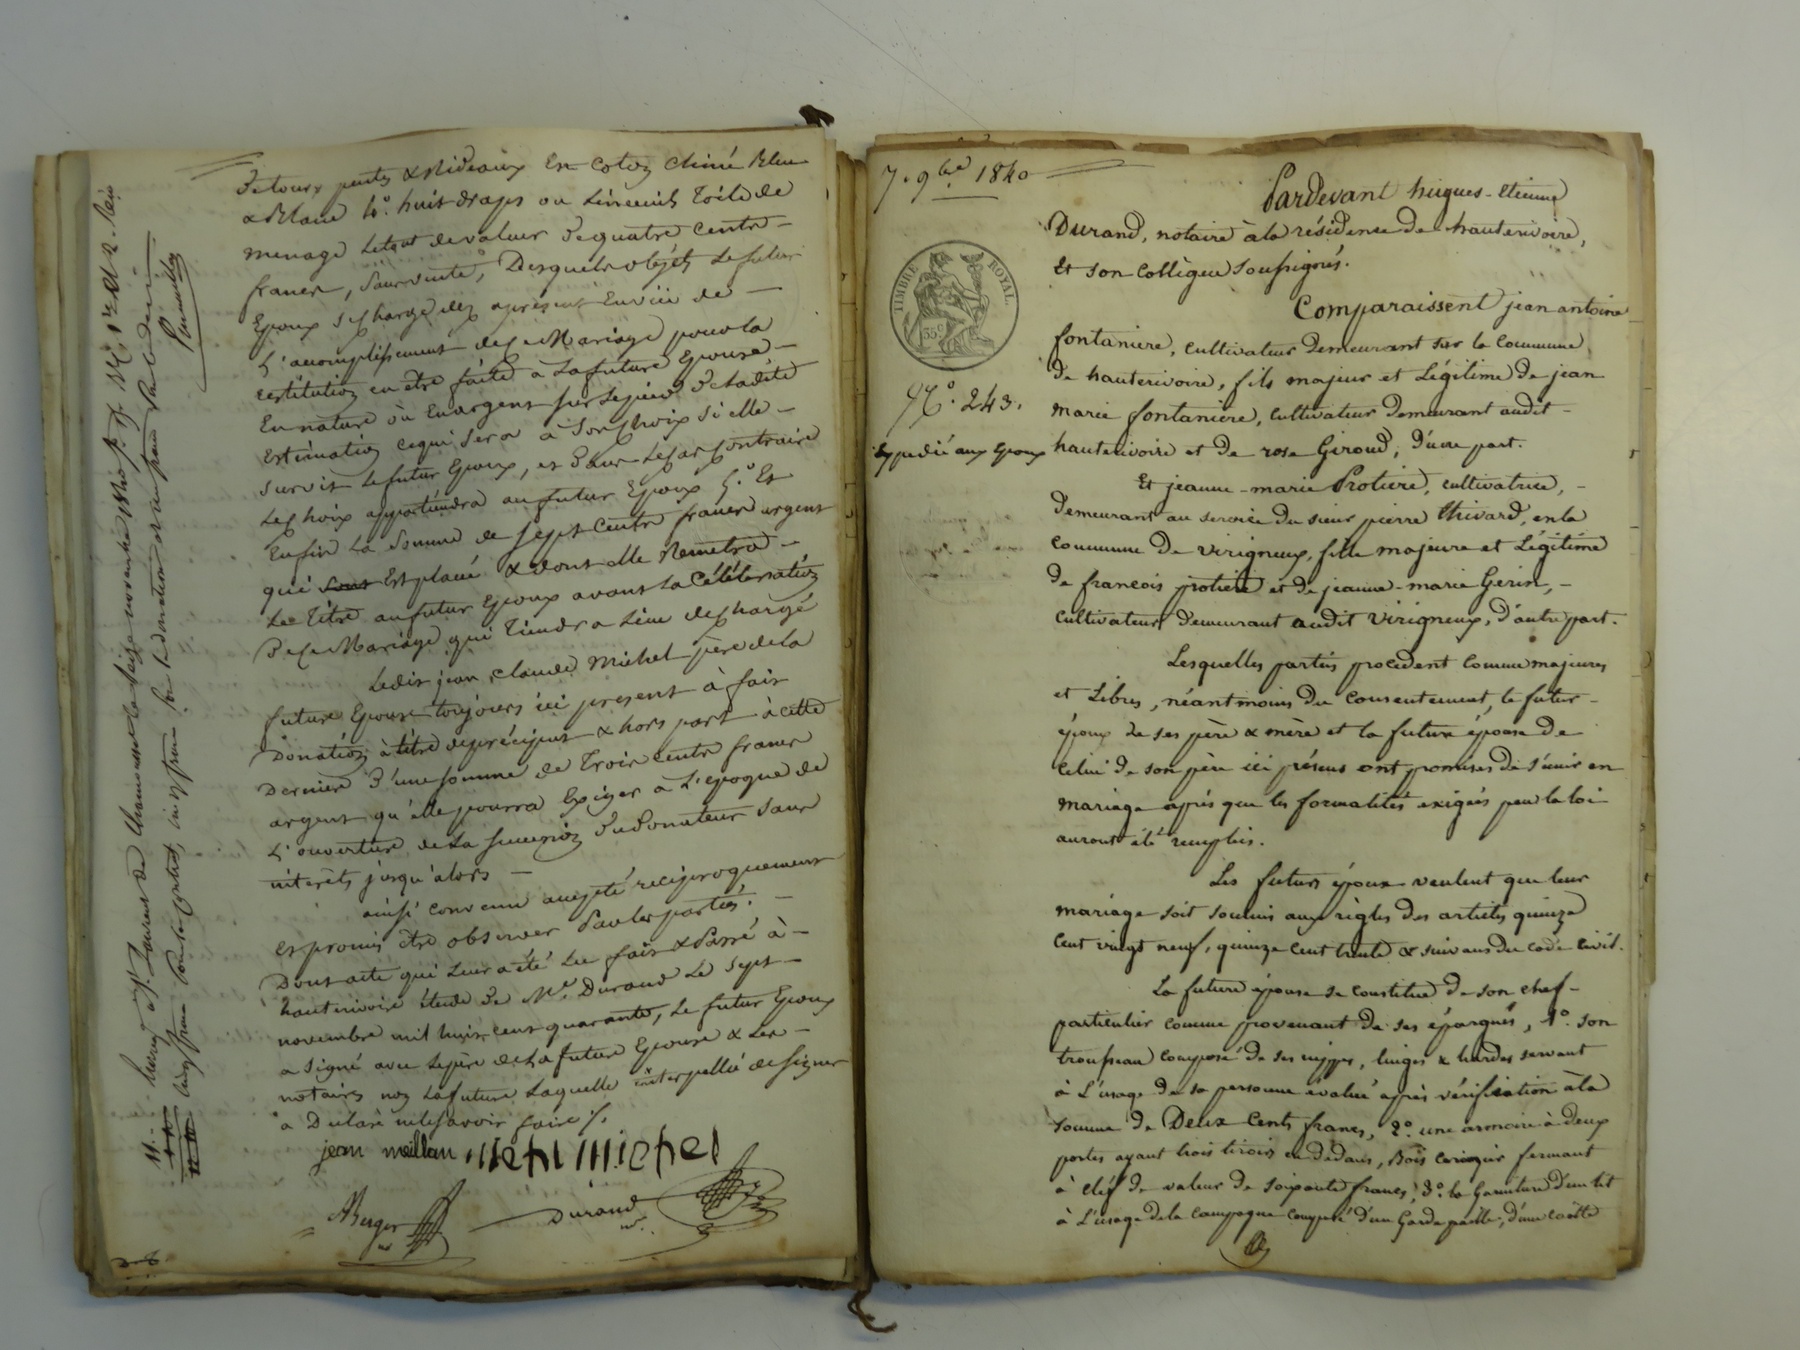 de tours pentes & Rideaux En coton chiné Bleu
& Blanc 4o. huit draps ou Linceuils Toile de
menage Letout devaleur de quatre Cents
francs, Saur vente, Desquels objéts Lefutur
Epoux se charge dez aprésent Envüe de
L'accomplissement deCe Mariage pour la
restitution en être faite à Lafuture Epouse
En nature ou En argent sur Lepied de Ladite
Estimation cequi sera à Son Choix si elle
survit Lefutur Epoux, et dans Lecas Contraire
Lechoix appartiendra au futur Epoux 5o. Et
Enfin La Somme de Sept Cents francs argent
qui Est placé & dont elle Remettra
Le Titre aufutur Epoux avant La Célébration
De Ce Mariage qui Tiendra Lieu de Charge
Ledit jean Claude Michel père de la
future Epouse toujours ici present à fait
Donation à titre depréciput & hors part à cette
Derniere d'une somme de Trois Cents francs
argent qu'elle pourra Exiger à L'epoque de
L'ouverture de La Succession du Donateur Sans
intérêts jusqu'alors
ainsi convenu accepté reciproquement
et promis être observer Par les parties.
Dont acte qui Leur a été Lu fait & Passé à
hauterivoire étude de Me. Durand Le Sept
novembre mil huit cent quarante, Le futur Epoux
a Signé avec Lepère de La future Epouse & Les
notaires non Lafuture Laquelle interpellée de Signer
à Déclaré nele savoir faire /.
jean meillan Michel
Berger Durand
7. 9bre 1840
TIMBRE ROYAL
35c
No. 243.
Expédié aux Epoux
Pardevant hugues-etienne
Durand, notaire à la résidence de hauterivoire,
et son collègue soussignés.
Comparaissent jean antoine
fontaniere, cultivateur demeurant sur la commune
de hauterivoire, fils majeur et Légitime de jean
marie fontaniere, cultivateur demeurant audit
hauterivoire et de rose Giroud, d'une part.
Et jeanne-marie Protiere, cultivatrice,
demeurant au service du sieur pierre thivard, en la
commune de virigneux, fille majeure et Légitime
de francois protiere et de jeanne-marie Gerin,
cultivateurs demeurant audit virigneux, d'autre part.
Lesquelles parties procedent comme majeures
et Libres, néantmoins du consentement, le futur
époux de ses père & mère et la future épouse de
celui de son père ici présens ont promises de s'unir en
mariage après que les formalités exigées par la loi
auront été remplies.
Les futurs époux veulent que leur
mariage soit soumis aux règles des articles quinze
cent vingt neuf, quinze cent trente & suivans du code civil.
La future épouse se constitue de son chef
particulier comme provenant de ses épargnes, 1o. son
trousseau composé de ses nippes, linges & hardes servant
à L'usage de sa personne évalué après vérification à la
somme de Deux Cents francs, 2o. une armoire à deux
portes ayant trois tiroirs en dedans, Bois cerisier fermant
à clef de valeur de soixante francs, 3o. la Garniture d'un lit
à L'usage de la campagne composé d'un Garde paille, d'une coëtte